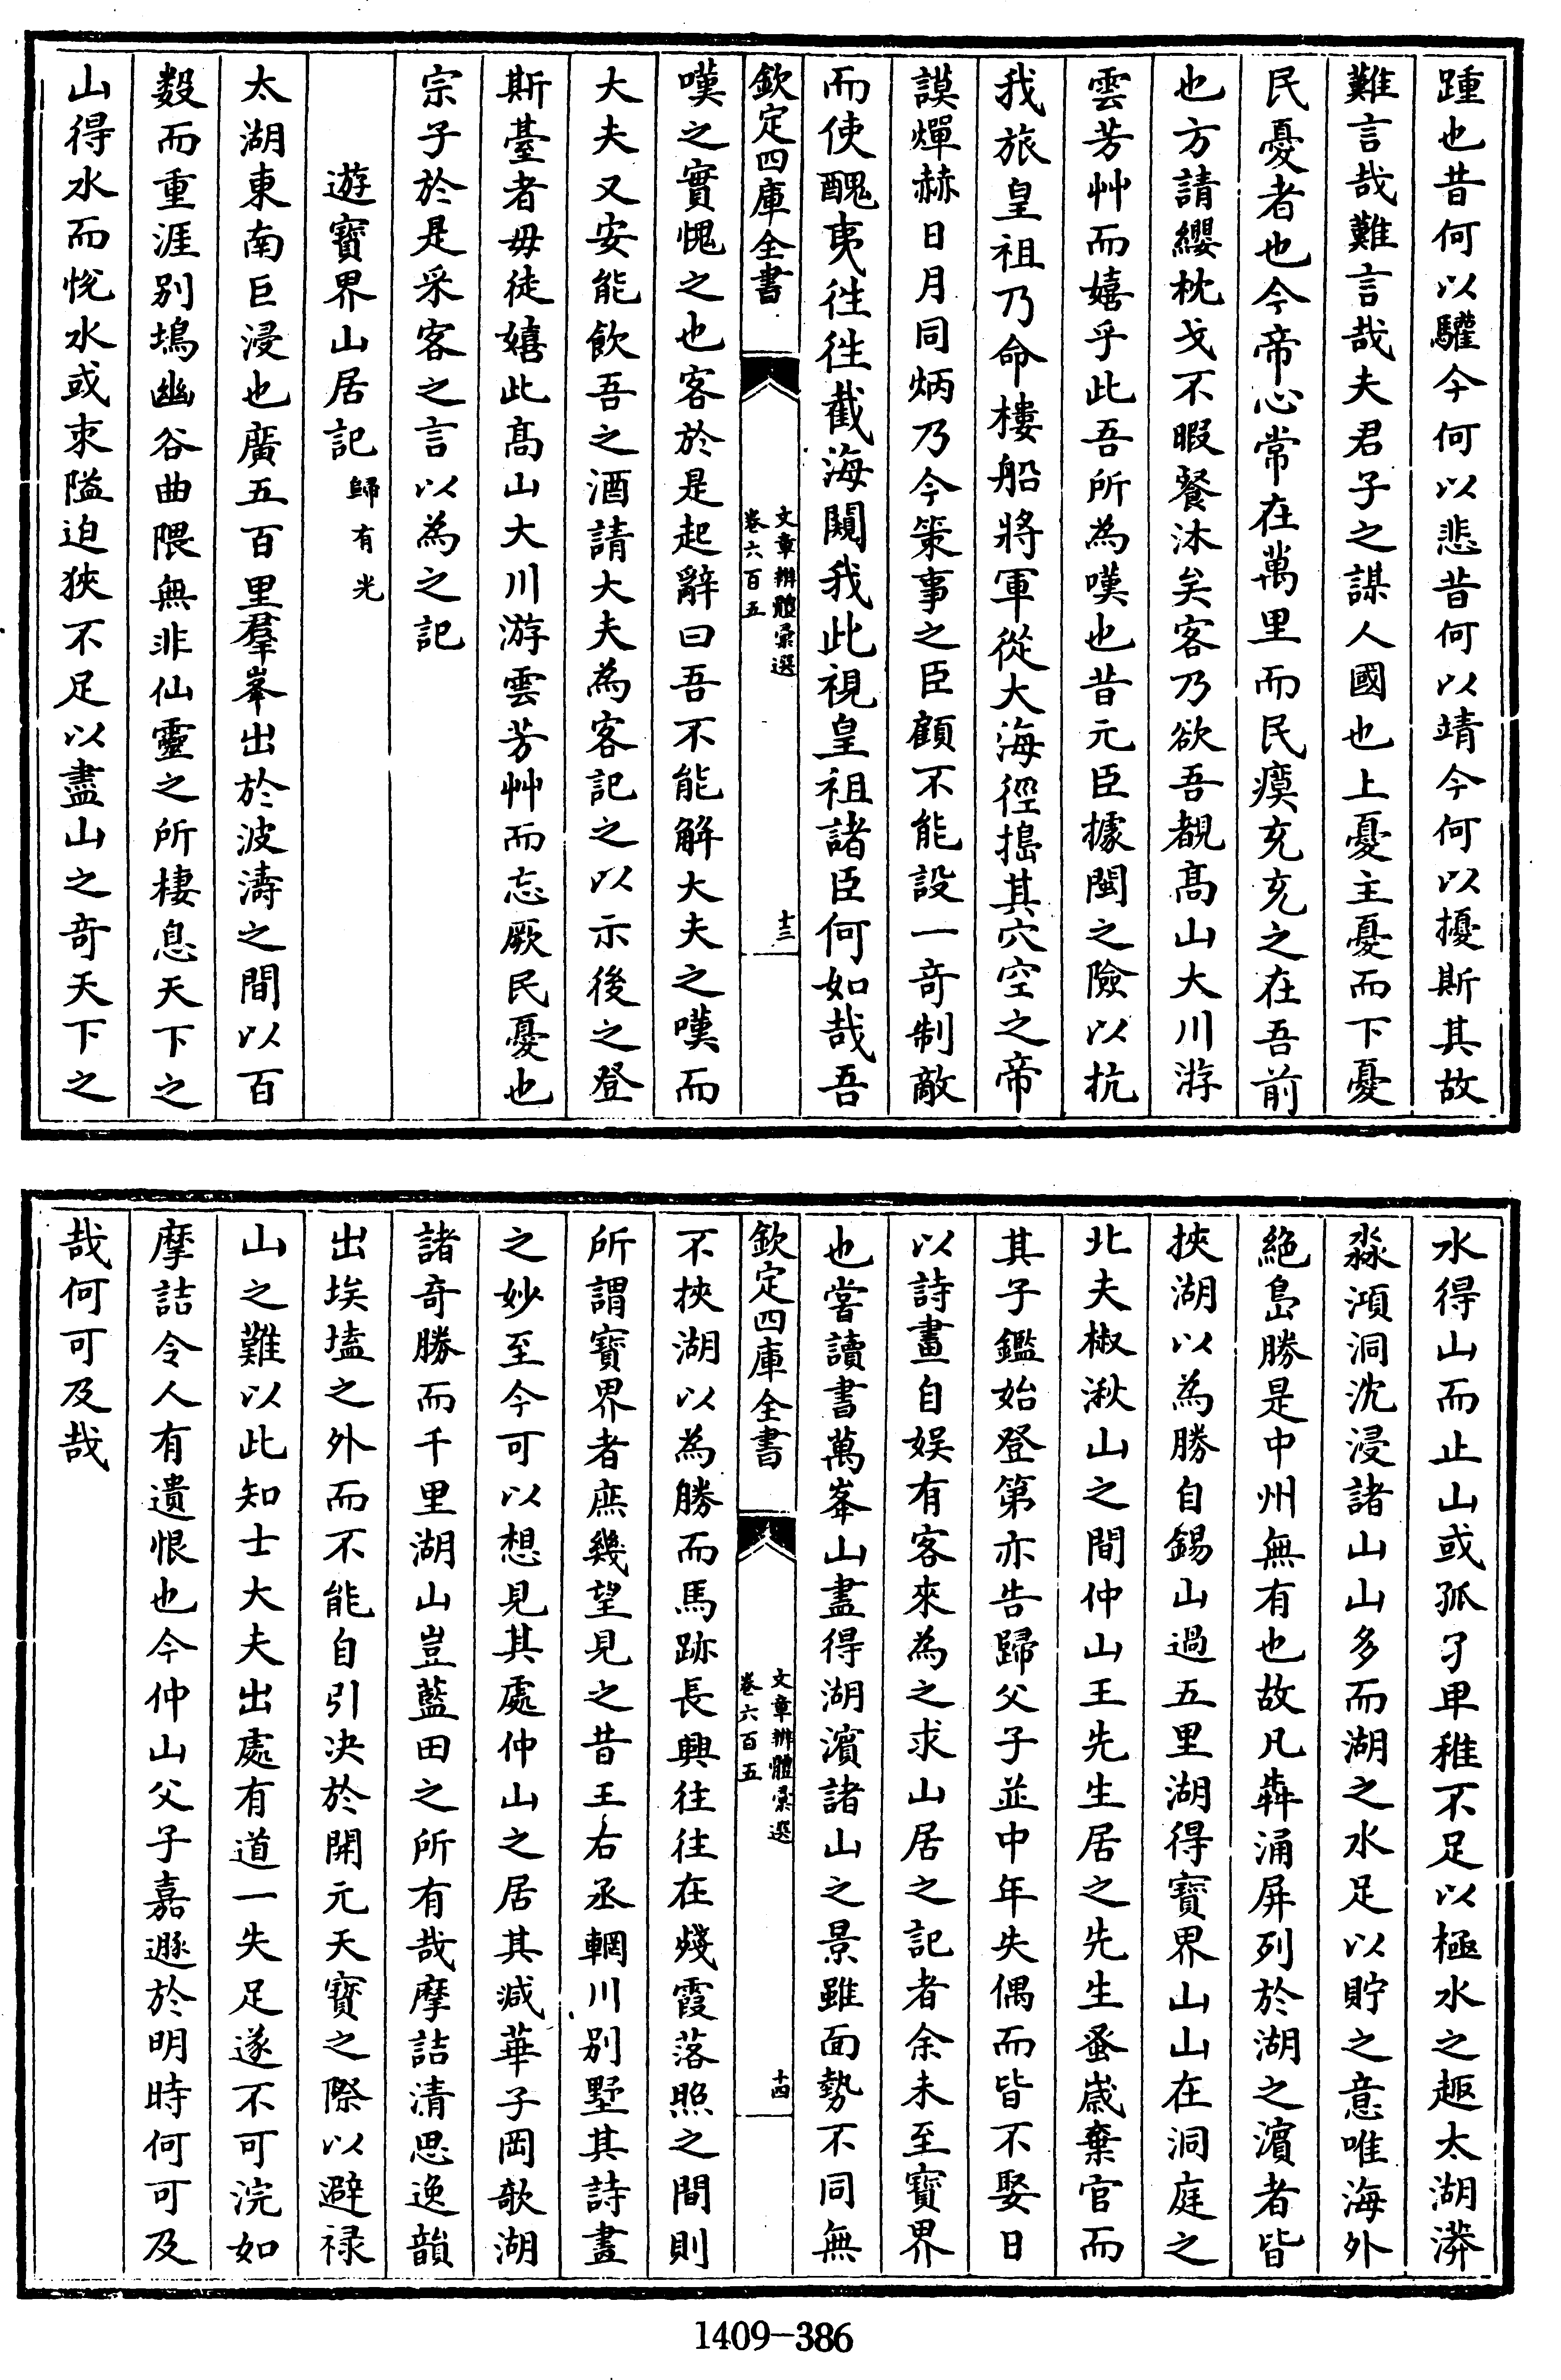 踵也昔何以驩今何以悲昔何以靖今何以擾斯其故
難言哉難言哉夫君子之謀人國也上憂主憂而下憂
民憂者也今帝心常在萬里而民瘼充充之在吾前
也方請纓枕戈不暇餐沐矣客乃欲吾覩髙山大川游
雲芳艸而嬉乎此吾所為嘆也昔元臣據閩之險以抗
我旅皇祖乃命樓船將軍從大海徑搗其穴空之帝
謨燀赫日月同炳乃今策事之臣顧不能設一奇制敵
而使醜夷徃徃截海闚我此視皇祖諸臣何如哉吾
欽定四庫全書
文章辨體彚選
卷六百五
十三
嘆之實愧之也客於是起辭曰吾不能解大夫之嘆而
大夫又安能飲吾之酒請大夫為客記之以示後之登
斯臺者毋徒嬉此髙山大川游雲芳艸而忘厥民憂也
宗子於是采客之言以為之記
遊寳界山居記歸有光
太湖東南巨浸也廣五百里羣峯出於波濤之間以百
數而重涯別塢幽谷曲隈無非仙靈之所棲息天下之
山得水而悅水或束隘迫狹不足以盡山之奇天下之
水得山而止山或孤孑卑稚不足以極水之趣太湖漭
淼澒洞沈浸諸山山多而湖之水足以貯之意唯海外
絕島勝是中州無有也故凡犇涌屏列於湖之濱者皆
挾湖以為勝自錫山過五里湖得寳界山山在洞庭之
北夫椒湫山之間仲山王先生居之先生蚤嵗棄官而
其子鑑始登第亦告歸父子並中年失偶而皆不娶日
以詩畫自娛有客來為之求山居之記者余未至寳界
也嘗讀書萬峯山盡得湖濱諸山之景雖面勢不同無
欽定四庫全書
文章辨體彚選
卷六百五
十四
不挾湖以為勝而馬跡長興往往在殘霞落照之間則
所謂寳界者庶幾望見之昔王右丞輞川別墅其詩畫
之妙至今可以想見其處仲山之居其減華子岡欹湖
諸奇勝而千里湖山豈藍田之所有哉摩詰清思逸韻
出埃壒之外而不能自引决於開元天寳之際以避禄
山之難以此知士大夫出處有道一失足遂不可浣如
摩詰令人有遺恨也今仲山父子嘉遯於明時何可及
哉何可及哉
1409-386